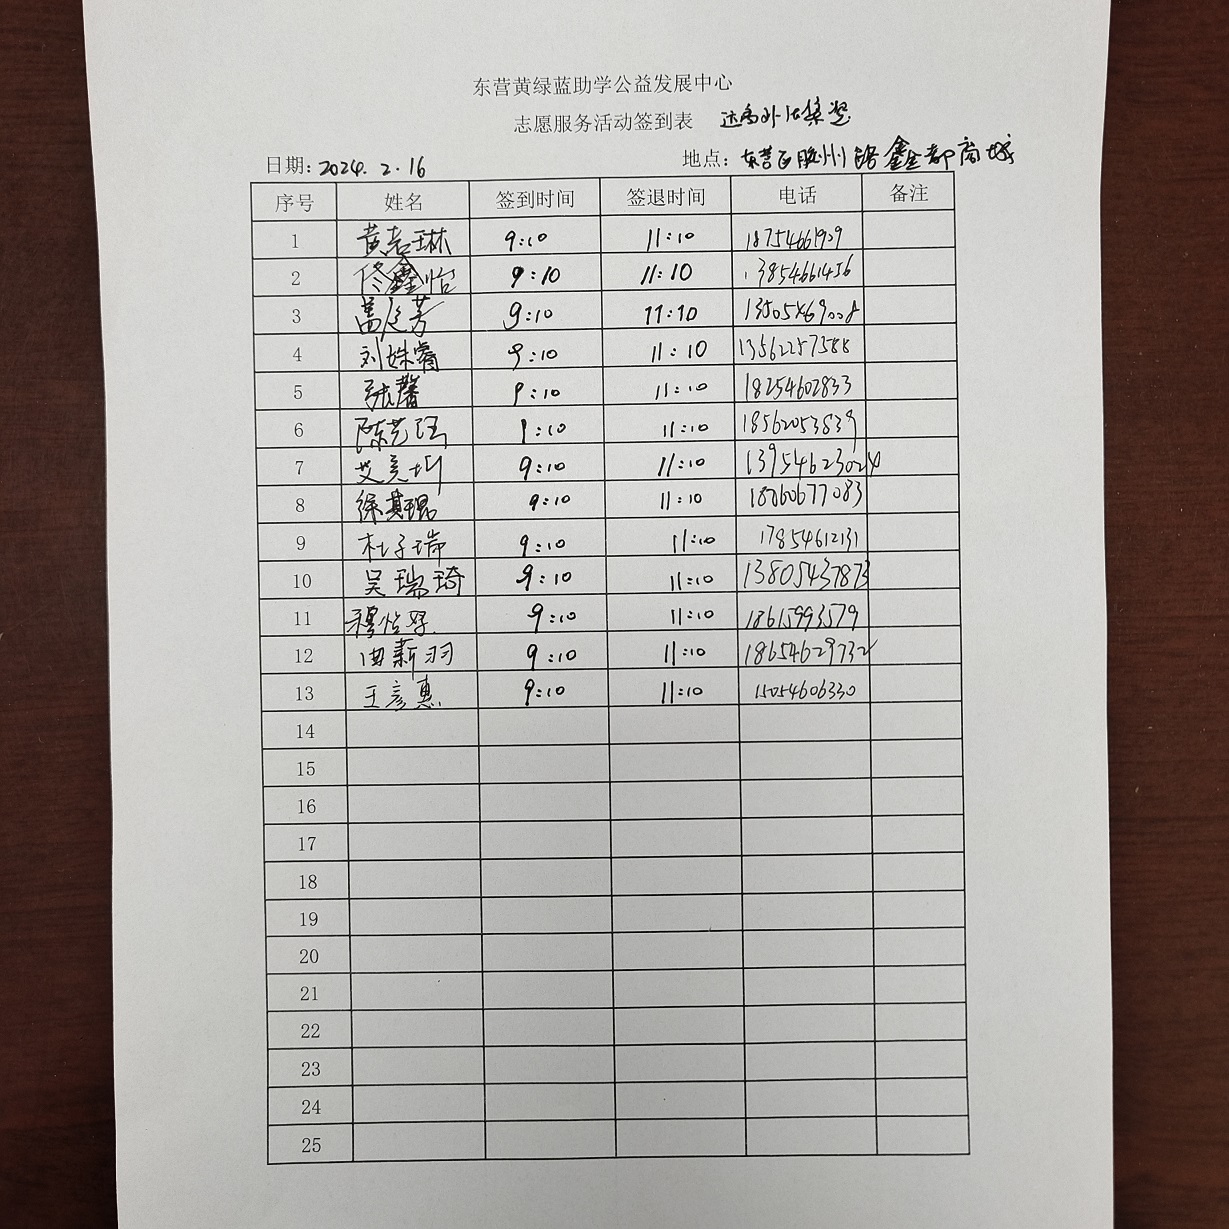 东营黄绿蓝助学公益发展中心
志愿服务活动签到表
日期: 2024.2.16 地点: 东营区胶州路鑫都商城
序号 姓名 签到时间 签退时间 电话 备注
1 黄若琳 9:10 11:10 18754661909
2 佟鑫怡 9:10 11:10 13854661456
3 9:10 11:10 13505469008
4 刘姝睿 9:10 11:10 13562257588
5 张馨 9:10 11:10 18254602833
6 陈艺珏 9:10 11:10 18562053839
7 9:10 11:10 13954623024
8 徐其琨 9:10 11:10 18260677083
9 杜子瑞 9:10 11:10 17854612131
10 吴瑞琦 9:10 11:10 13805437873
11 9:10 11:10 18615993579
12 曲新羽 9:10 11:10 18654629732
13 王彦惠 9:10 11:10 15054606330
14
15
16
17
18
19
20
21
22
23
24
25